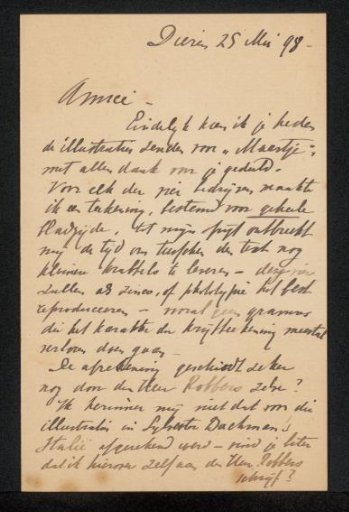 Dieren 25 Mei 98 -
Amice -
Eindelijk kan ik je heden
de illustraties zenden voor "Meerstje",
met allen dank voor je geduld.
Voor elk der vier bedrijven maakte
ik een teekening, bestemd voor geheele
bladzijde. Tot mijn spijt ontbreekt
mij de tijd om tusschen den tekst nog
kleinere krabbels te leveren - deze vier
zullen als zinco, of phototypie het best
reproduceeren - vooral geen
die het karakter der krijtteekening meestal
verloren doen gaan -
De afrekening geschiedt zeker
nog door den Heer Robbers zelve?
Ik herinner mij niet dat voor die
illustratie in Sylvestre
Italië afgerekend werd - vind je beter
dat ik hierover zelf aan den Heer Robbers
schrijf?